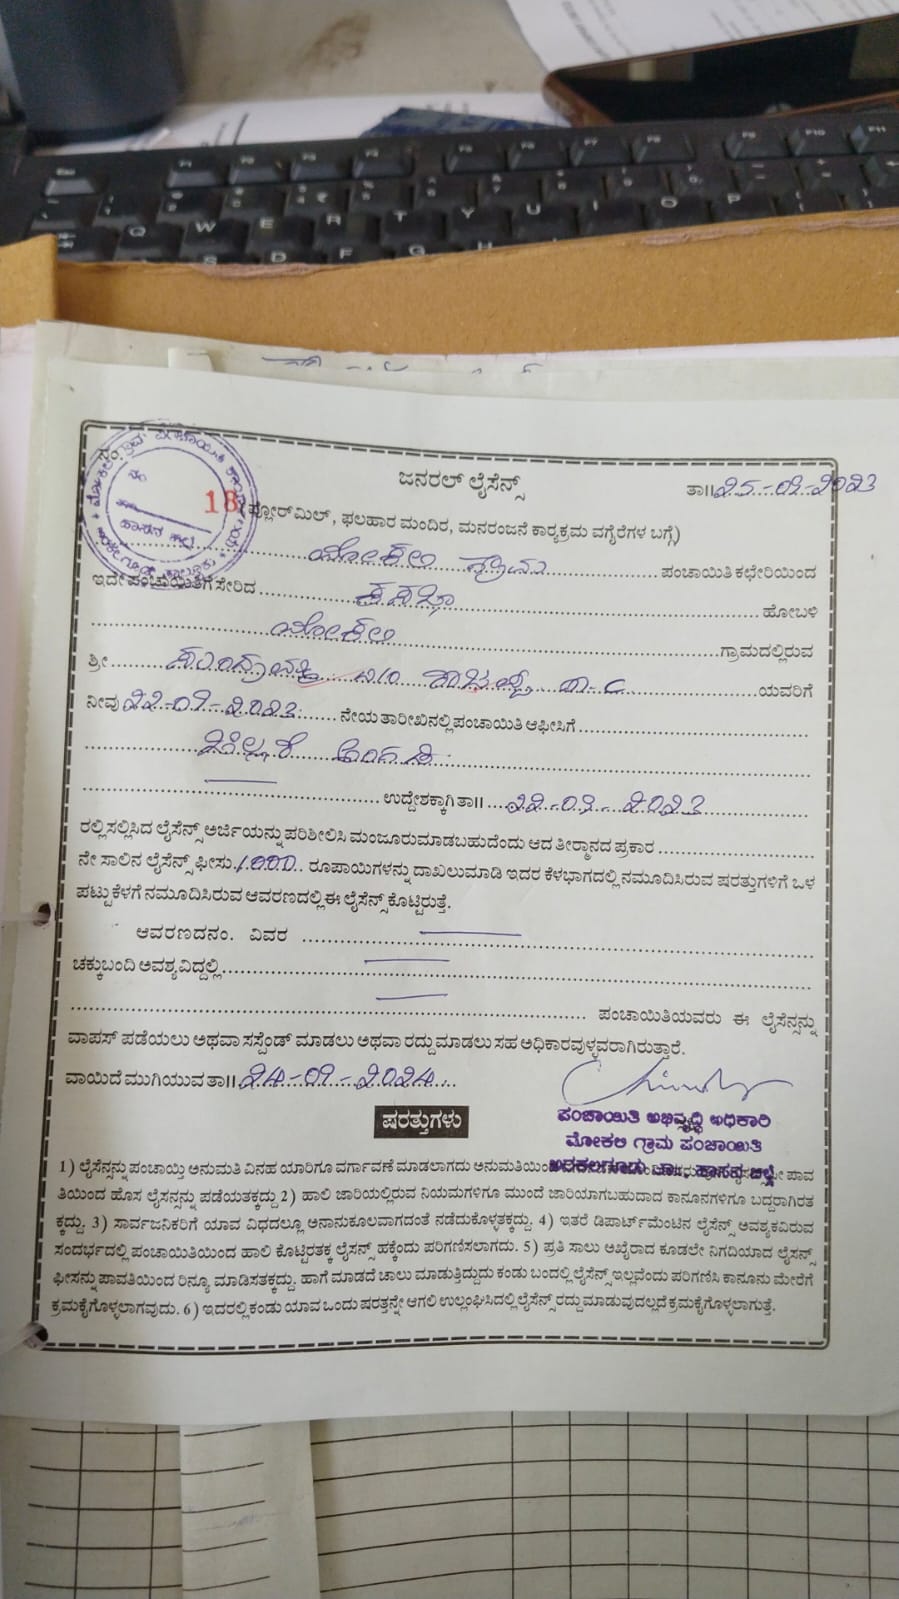 ನಂ.
ಜನರಲ್ ಲೈಸೆನ್ಸ್
ತಾ॥ 25-09-2023
18
(ಫ್ಲೋರ್‌ಮಿಲ್, ಫಲಹಾರ ಮಂದಿರ, ಮನರಂಜನೆ ಕಾರ್‍ಯಕ್ರಮ ವಗೈರೆಗಳ ಬಗ್ಗೆ)
ಮೋಕಲಿ ಗ್ರಾಮ ಪಂಚಾಯಿತಿ ಕಛೇರಿಯಿಂದ
ಇದೇ ಪಂಚಾಯಿತಿಗೆ ಸೇರಿದ ಕಸಬಾ ಹೋಬಳಿ
ಮೋಕಲಿ ಗ್ರಾಮದಲ್ಲಿರುವ
ಶ್ರೀ ಯವರಿಗೆ
ನೀವು 22-09-2023 ನೇಯ ತಾರೀಖಿನಲ್ಲಿ ಪಂಚಾಯಿತಿ ಆಫೀಸಿಗೆ
ಚಿಲ್ಲರೆ ಅಂಗಡಿ
ಉದ್ದೇಶಕ್ಕಾಗಿ ತಾ॥ 22-09-2023
ರಲ್ಲಿ ಸಲ್ಲಿಸಿದ ಲೈಸೆನ್ಸ್ ಅರ್ಜಿಯನ್ನು ಪರಿಶೀಲಿಸಿ ಮಂಜೂರುಮಾಡಬಹುದೆಂದು ಆದ ತೀರ್ಮಾನದ ಪ್ರಕಾರ
ನೇ ಸಾಲಿನ ಲೈಸೆನ್ಸ್ ಫೀಸು 1000 ರೂಪಾಯಿಗಳನ್ನು ದಾಖಲುಮಾಡಿ ಇದರ ಕೆಳಭಾಗದಲ್ಲಿ ನಮೂದಿಸಿರುವ ಷರತ್ತುಗಳಿಗೆ ಒಳ
ಪಟ್ಟು ಕೆಳಗೆ ನಮೂದಿಸಿರುವ ಆವರಣದಲ್ಲಿ ಈ ಲೈಸೆನ್ಸ್ ಕೊಟ್ಟಿರುತ್ತೆ.
ಆವರಣದ ನಂ. ವಿವರ
ಚಕ್ಕುಬಂದಿ ಅವಶ್ಯವಿದ್ದಲ್ಲಿ
ಪಂಚಾಯಿತಿಯವರು ಈ ಲೈಸೆನ್ಸನ್ನು
ವಾಪಸ್ ಪಡೆಯಲು ಅಥವಾ ಸಸ್ಪೆಂಡ್ ಮಾಡಲು ಅಥವಾ ರದ್ದು ಮಾಡಲು ಸಹ ಅಧಿಕಾರವುಳ್ಳವರಾಗಿರುತ್ತಾರೆ.
ವಾಯಿದೆ ಮುಗಿಯುವ ತಾ॥ 24-09-2024
ಷರತ್ತುಗಳು
ಪಂಚಾಯಿತಿ ಅಭಿವೃದ್ಧಿ ಅಧಿಕಾರಿ
ಮೋಕಲಿ ಗ್ರಾಮ ಪಂಚಾಯಿತಿ
ಅರಕಲಗೂಡು ತಾ., ಹಾಸನ ಜಿಲ್ಲೆ
1) ಲೈಸೆನ್ಸನ್ನು ಪಂಚಾಯ್ತಿ ಅನುಮತಿ ವಿನಹ ಯಾರಿಗೂ ವರ್ಗಾವಣೆ ಮಾಡಲಾಗದು
ತಿಯಿಂದ ಹೊಸ ಲೈಸನ್ಸನ್ನು ಪಡೆಯತಕ್ಕದ್ದು 2) ಹಾಲಿ ಜಾರಿಯಲ್ಲಿರುವ ನಿಯಮಗಳಿಗೂ ಮುಂದೆ ಜಾರಿಯಾಗಬಹುದಾದ ಕಾನೂನಗಳಿಗೂ ಬದ್ದರಾಗಿರತ
ಕ್ಕದ್ದು. 3) ಸಾರ್ವಜನಿಕರಿಗೆ ಯಾವ ವಿಧದಲ್ಲೂ ಅನಾನುಕೂಲವಾಗದಂತೆ ನಡೆದುಕೊಳ್ಳತಕ್ಕದ್ದು. 4) ಇತರೆ ಡಿಪಾರ್ಟ್‌ಮೆಂಟಿನ ಲೈಸೆನ್ಸ್ ಅವಶ್ಯಕವಿರುವ
ಸಂದರ್ಭದಲ್ಲಿ ಪಂಚಾಯಿತಿಯಿಂದ ಹಾಲಿ ಕೊಟ್ಟಿರತಕ್ಕ ಲೈಸೆನ್ಸ್ ಹಕ್ಕೆಂದು ಪರಿಗಣಿಸಲಾಗದು. 5) ಪ್ರತಿ ಸಾಲು ಆಖೈರಾದ ಕೂಡಲೇ ನಿಗದಿಯಾದ ಲೈಸನ್ಸ್
ಫೀಸನ್ನು ಪಾವತಿಯಿಂದ ರಿನ್ಯೂ ಮಾಡಿಸತಕ್ಕದ್ದು. ಹಾಗೆ ಮಾಡದೆ ಚಾಲು ಮಾಡುತ್ತಿದ್ದುದು ಕಂಡು ಬಂದಲ್ಲಿ ಲೈಸೆನ್ಸ್ ಇಲ್ಲವೆಂದು ಪರಿಗಣಿಸಿ ಕಾನೂನು ಮೇರೆಗೆ
ಕ್ರಮಕೈಗೊಳ್ಳಲಾಗವುದು. 6) ಇದರಲ್ಲಿ ಕಂಡು ಯಾವ ಒಂದು ಷರತ್ತನ್ನೇ ಆಗಲಿ ಉಲ್ಲಂಘಿಸಿದಲ್ಲಿ ಲೈಸೆನ್ಸ್ ರದ್ದು ಮಾಡುವುದಲ್ಲದೆ ಕ್ರಮಕೈಗೊಳ್ಳಲಾಗುತ್ತೆ.